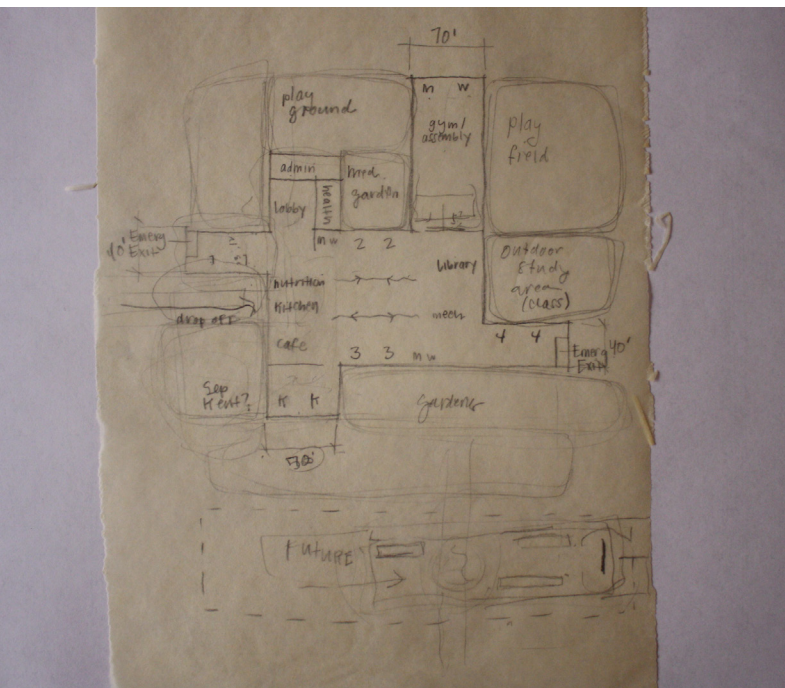 70'
play
ground
m w
gym/
assembly
play
field
admin
med.
garden
lobby
health
Emerg
Exit
40'
m w
2 2
library
Outdoor
study
area
(class)
nutrition
kitchen
mech
drop off
cafe
3 3 m w
4 4
Emerg
Exit
40'
Sep
Kent?
K K
gardens
70'
FUTURE